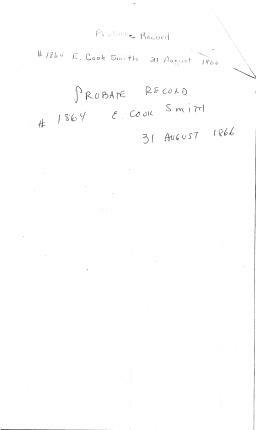 Probate Record
# 1864 E. Cook Smith 31 August 1866
PROBATE RECORD
# 1864 E COOK SMITH
31 AUGUST 1866